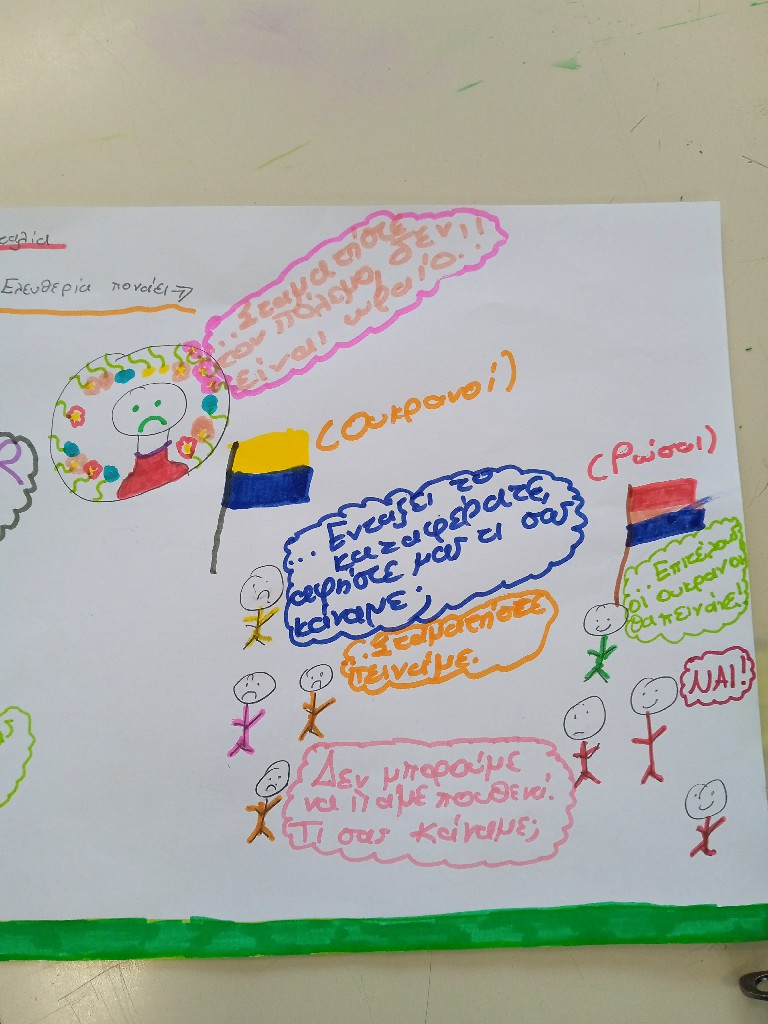 αλία
Ελευθερία πονάει →
...Σταματήστε
τον πόλεμο, δεν
είναι ωραίο.!!
(Ουκρανοί)
(Ρώσοι)
... Ενταξει το
καταφέρατε,
αφήστε μας τι σας
κάναμε;
... Επιτέλους
οί ουκρανοι
θα πεινάνε!
..Σταματήστε
πεινάμε.
ΝΑΙ!
Δεν μπορούμε
να πάμε πουθενά.
Τι σας κάναμε;